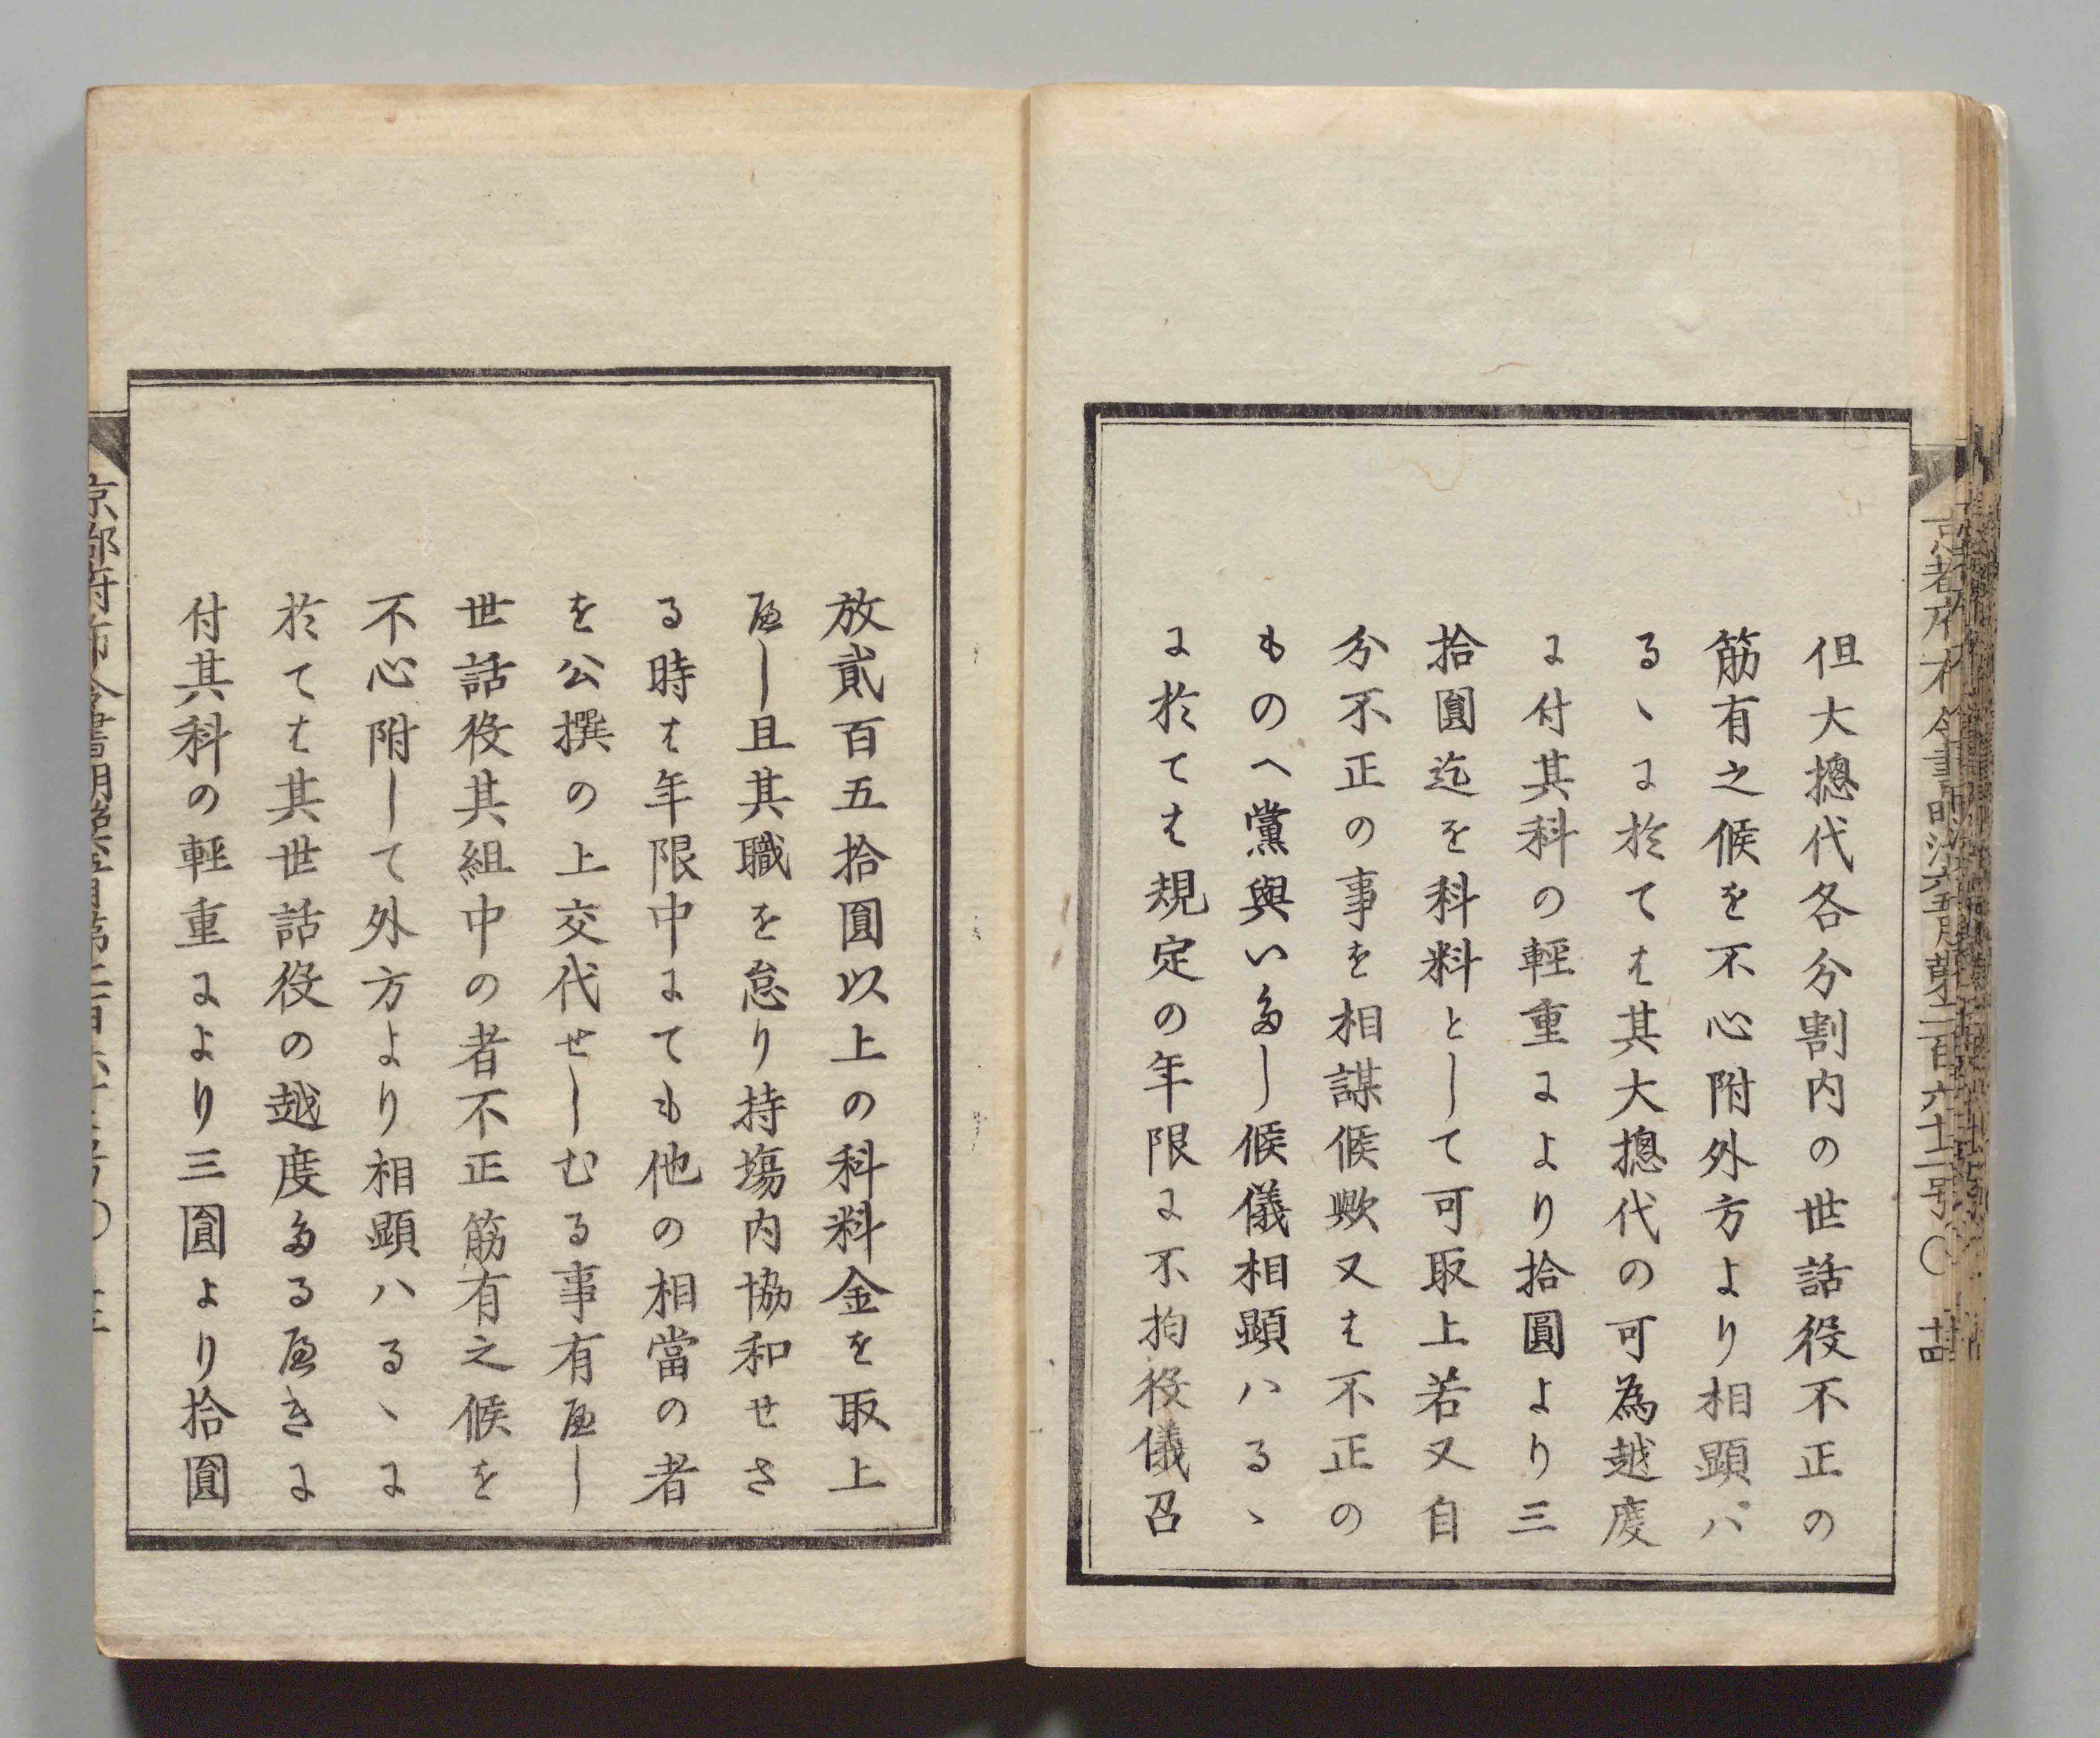 但大摠代各分割内の世話役不正の
筋有之候を不心附外方より相顕バ
るゝに於ては其大摠代の可為越度
に付其科の軽重により拾圓より三
拾圓迄を科料として可取上若又自
分不正の事を相謀候歟又は不正の
ものへ黨與いたし候儀相顕ハるゝ
に於ては規定の年限に不拘役儀召
放貳百五拾圓以上の科料金を取上
べし且其職を怠り持場内協和せさ
る時は年限中にても他の相當の者
を公撰の上交代せしむる事有べし
世話役其組中の者不正筋有之候を
不心附して外方より相顕ハるゝに
於ては其世話役の越度たるべきに
付其科の輕重により三圓より拾圓